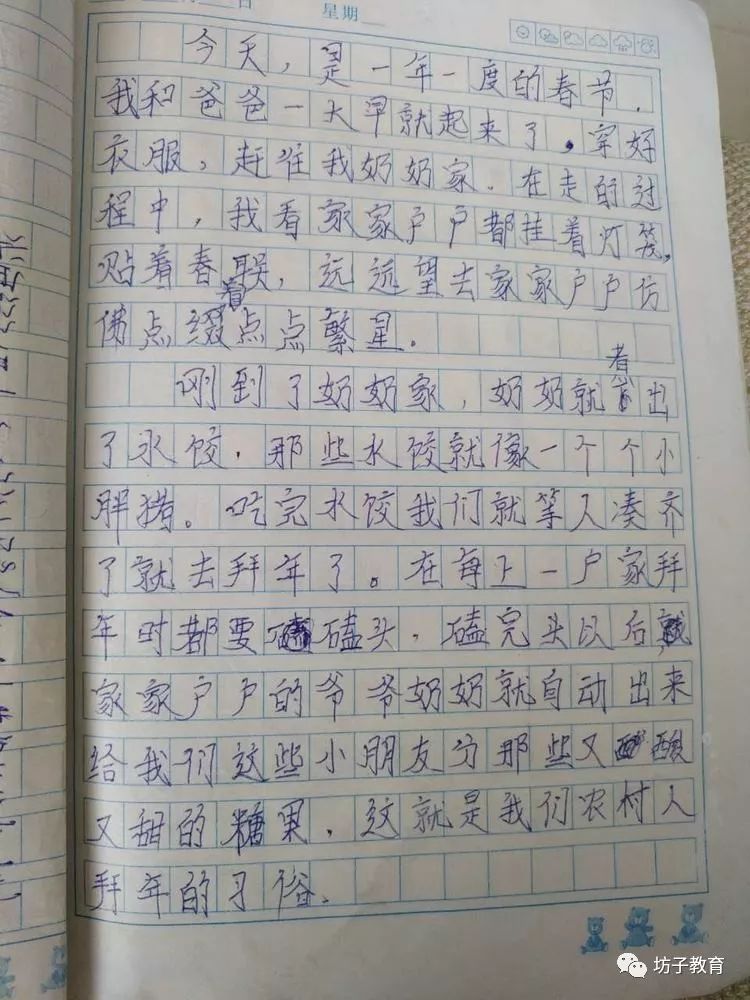 日
星期
今天，是一年一度的春节.
我和爸爸一大早就起来了，穿好
衣服，赶准我奶奶家.在走的过
程中，我看家家户户都挂着灯笼，
贴着春联，远远望去家家户户仿
佛点缀着点点繁星.
刚到了奶奶家，奶奶就煮出
了水饺.那些水饺就像一个个小
胖猪。吃完水饺我们就等人凑齐
了就去拜年了。在每上一户家拜
年时都要磕头，磕完头以后
家家户户的爷爷奶奶就自动出来
给我们这些小朋友分那些又酸
又甜的糖果，这就是我们农村人
拜年的习俗.
坊子教育